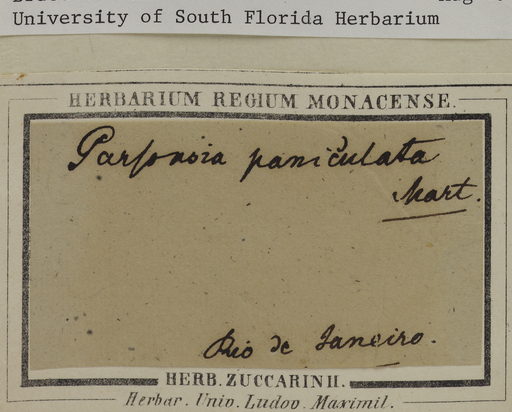 University of South Florida Herbarium
HERBARIUM REGIUM MONACENSE.
Parsonsia paniculata
Mart.
Rio de Janeiro.
HERB. ZUCCARINII.
Herbar. Univ. Ludov. Maximil.